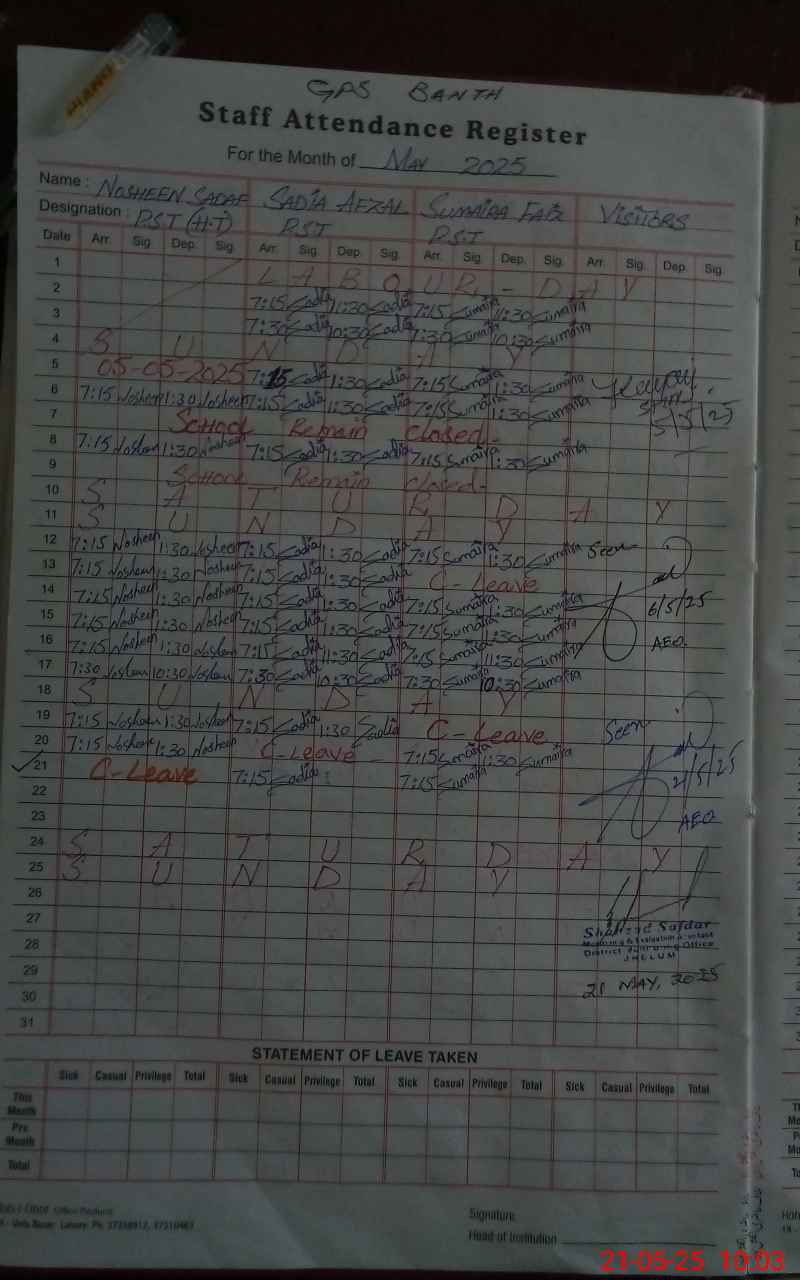 GPS BANTH
Staff Attendance Register
For the Month of MAY 2025
Name : NOSHEEN SADAF SADIA AFZAL SUMAIRA FAIZ VISITORS
Designation : P.S.T (H.T) P.S.T P.S.T
Date Arr. Sig. Dep. Sig. Arr. Sig. Dep. Sig. Arr. Sig. Dep. Sig. Arr. Sig. Dep. Sig.
1 L A B O U R - D A Y
2 7:15 Sadia 11:30 Sadia 7:15 Sumaira 11:30 Sumaira
3 7:30 Sadia 10:30 Sadia 7:30 Sumaira 10:30 Sumaira
4 S U N D A Y
5 05-05-2025 7:15 Sadia 1:30 Sadia 7:15 Sumaira 1:30 Sumaira
6 7:15 Nosheen 1:30 Nosheen 7:15 Sadia 1:30 Sadia 7:15 Sumaira 1:30 Sumaira 5/5/25
7 School Remain closed-
8 7:15 Nosheen 1:30 Nosheen 7:15 Sadia 1:30 Sadia 7:15 Sumaira 1:30 Sumaira
9 School Remain closed-
10 S A T U R D A Y
11 S U N D A Y
12 7:15 Nosheen 1:30 Nosheen 7:15 Sadia 1:30 Sadia 7:15 Sumaira 1:30 Sumaira Seen
13 7:15 Nosheen 1:30 Nosheen 7:15 Sadia 1:30 Sadia C-Leave
14 7:15 Nosheen 1:30 Nosheen 7:15 Sadia 1:30 Sadia 7:15 Sumaira 1:30 Sumaira 6/5/25
15 7:15 Nosheen 1:30 Nosheen 7:15 Sadia 1:30 Sadia 7:15 Sumaira 1:30 Sumaira AEO.
16 7:15 Nosheen 11:30 Nosheen 7:15 Sadia 11:30 Sadia 7:15 Sumaira 11:30 Sumaira
17 7:30 Nosheen 10:30 Nosheen 7:30 Sadia 10:30 Sadia 7:30 Sumaira 10:30 Sumaira
18 S U N D A Y
19 7:15 Nosheen 1:30 Nosheen 7:15 Sadia 1:30 Sadia C-Leave Seen
20 7:15 Nosheen 1:30 Nosheen C-Leave 7:15 Sumaira 1:30 Sumaira
21 C-Leave 7:15 Sadia 7:15 Sumaira 21/5/25
22
23 AEO
24 S A T U R D A Y
25 S U N D A Y
26
27 Shaheed Safdar
28 District Monitoring Office
JHELUM
29 21 MAY, 2025
30
31
STATEMENT OF LEAVE TAKEN
Sick Casual Privilege Total Sick Casual Privilege Total Sick Casual Privilege Total Sick Casual Privilege Total
This Month
Pre Month
Total
Office Products
Urdu Bazar Lahore. Ph:
Signature
Head of Institution
21-05-25 10:03